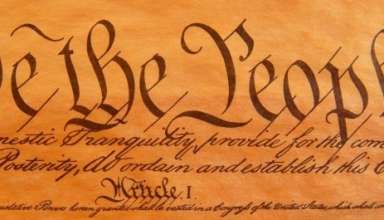 We the People
mestic Tranquility, provide for the com
Posterity, do ordain and establish this C
Article I.
Powers herein granted shall be vested in a Congress of the United States, which shall